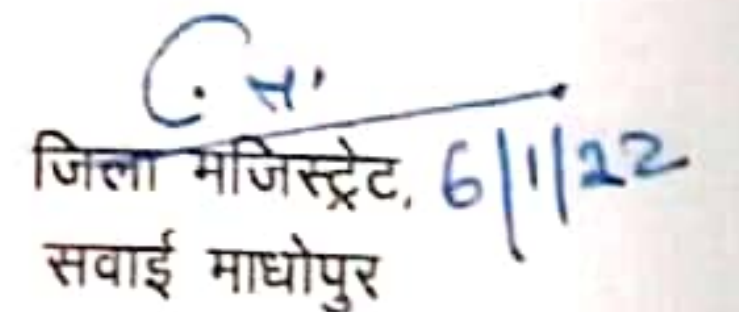 जिला मजिस्ट्रेट, 6/1/22
सवाई माधोपुर